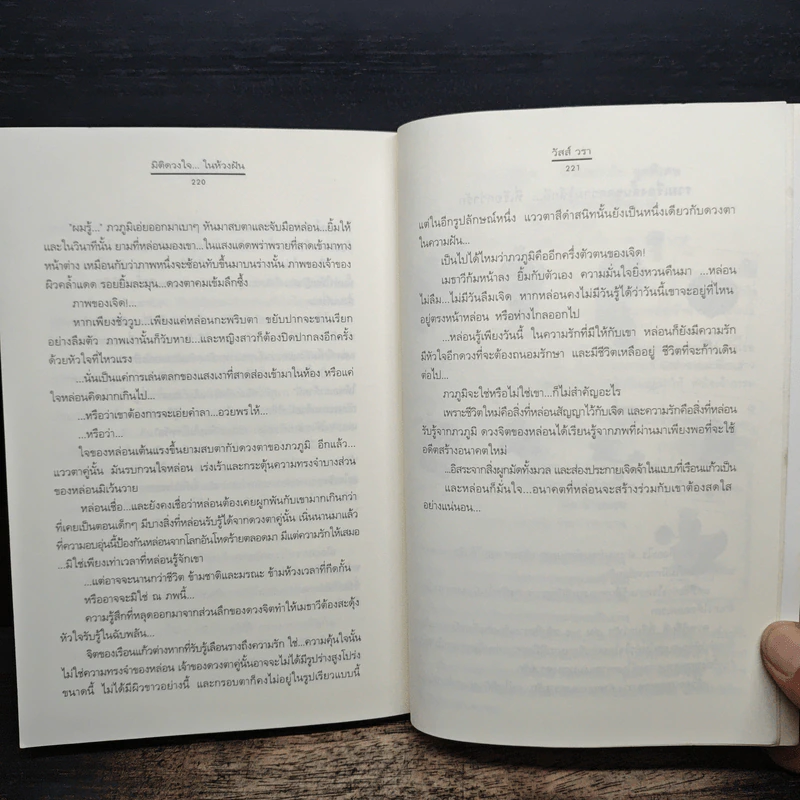 มิติดวงใจ... ในห้วงฝัน
220
"ผมรู้..." ภวภูมิเอ่ยออกมาเบาๆ หันมาสบตาและจับมือหล่อน...ยิ้มให้
และในวินาทีนั้น ยามที่หล่อนมองเขา...ในแสงแดดพร่าพรายที่สาดเข้ามาทาง
หน้าต่าง เหมือนกับว่าภาพหนึ่งจะซ้อนทับขึ้นมาบนร่างนั้น ภาพของเจ้าของ
ผิวคล้ำแดด รอยยิ้มละมุน...ดวงตาคมเข้มลึกซึ้ง
ภาพของเจิด!...
หากเพียงชั่ววูบ...เพียงแค่หล่อนกะพริบตา ขยับปากจะขานเรียก
อย่างลืมตัว ภาพเงานั้นก็วับหาย...และหญิงสาวก็ต้องปิดปากลงอีกครั้ง
ด้วยหัวใจที่ไหวแรง
...นั่นเป็นแค่การเล่นตลกของแสงเงาที่สาดส่องเข้ามาในห้อง หรือแค่
ใจหล่อนคิดมากเกินไป...
...หรือว่าเขาต้องการจะเอ่ยคำลา...อวยพรให้...
...หรือว่า...
ใจของหล่อนเต้นแรงขึ้นยามสบตากับดวงตาของภวภูมิ อีกแล้ว...
แววตาคู่นั้น มันรบกวนใจหล่อน เร่งเร้าและกระตุ้นความทรงจำบางส่วน
ของหล่อนมิเว้นวาย
หล่อนเชื่อ...และยังคงเชื่อว่าหล่อนต้องเคยผูกพันกับเขามากเกินกว่า
ที่เคยเป็นตอนเด็กๆ มีบางสิ่งที่หล่อนรับรู้ได้จากดวงตาคู่นั้น เนิ่นนานมาแล้ว
ที่ความอบอุ่นนี้ป้องกันหล่อนจากโลกอันโหดร้ายตลอดมา มีแต่ความรักให้เสมอ
...มิใช่เพียงเท่าเวลาที่หล่อนรู้จักเขา
...แต่อาจจะนานกว่าชีวิต ข้ามชาติและมรณะ ข้ามห้วงเวลาที่กีดกั้น
หรืออาจจะมิใช่ ณ ภพนี้...
ความรู้สึกที่หลุดออกมาจากส่วนลึกของดวงจิตทำให้เมธาวีต้องสะดุ้ง
หัวใจรับรู้ในฉับพลัน...
จิตของเรือนแก้วต่างหากที่รับรู้เลือนรางถึงความรัก ใช่...ความคุ้นใจนั้น
ไม่ใช่ความทรงจำของหล่อน เจ้าของดวงตาคู่นั้นอาจจะไม่ได้มีรูปร่างสูงโปร่ง
ขนาดนี้ ไม่ได้มีผิวขาวอย่างนี้ และกรอบตาก็คงไม่อยู่ในรูปเรียวแบบนี้
วัสส์ วรา
221
แต่ในอีกรูปลักษณ์หนึ่ง แววตาสีดำสนิทนั้นยังเป็นหนึ่งเดียวกับดวงตา
ในความฝัน...
เป็นไปได้ไหมว่าภวภูมิคืออีกครึ่งตัวตนของเจิด!
เมธาวีก้มหน้าลง ยิ้มกับตัวเอง ความมั่นใจยิ่งหวนคืนมา ...หล่อน
ไม่ลืม...ไม่มีวันลืมเจิด หากหล่อนคงไม่มีวันรู้ได้ว่าวันนี้เขาจะอยู่ที่ไหน
อยู่ตรงหน้าหล่อน หรือห่างไกลออกไป
...หล่อนรู้เพียงวันนี้ ในความรักที่มีให้กับเขา หล่อนก็ยังมีความรัก
มีหัวใจอีกดวงที่จะต้องถนอมรักษา และมีชีวิตเหลืออยู่ ชีวิตที่จะก้าวเดิน
ต่อไป...
ภวภูมิจะใช่หรือไม่ใช่เขา...ก็ไม่สำคัญอะไร
เพราะชีวิตใหม่คือสิ่งที่หล่อนสัญญาไว้กับเจิด และความรักคือสิ่งที่หล่อน
รับรู้จากภวภูมิ ดวงจิตของหล่อนได้เรียนรู้จากภพที่ผ่านมาเพียงพอที่จะใช้
อดีตสร้างอนาคตใหม่
...อิสระจากสิ่งผูกมัดทั้งมวล และส่องประกายเจิดจ้าในแบบที่เรือนแก้วเป็น
และหล่อนก็มั่นใจ...อนาคตที่หล่อนจะสร้างร่วมกับเขาต้องสดใส
อย่างแน่นอน...